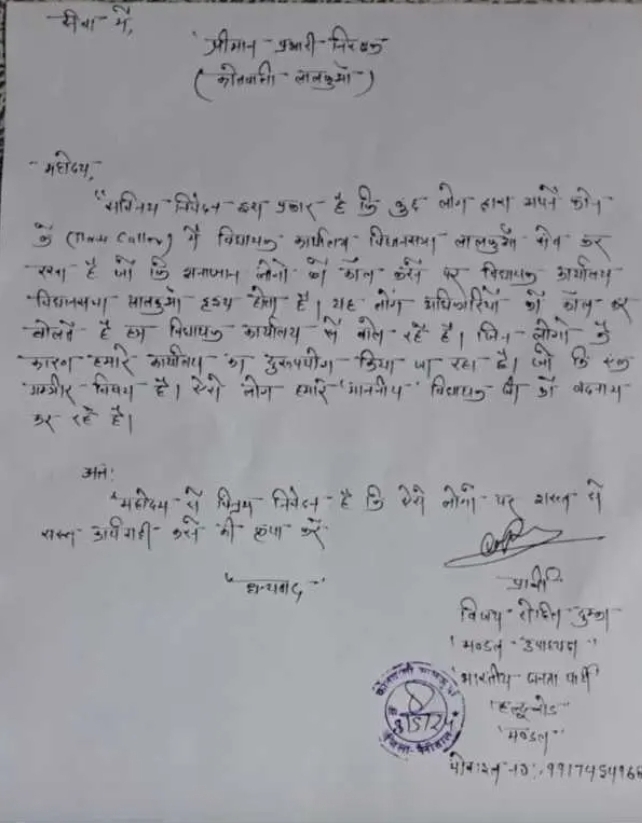 सेवा में,
श्रीमान प्रभारी निरीक्षक
(कोतवाली लालकुआँ)
महोदय,
"सविनय निवेदन इस प्रकार है कि कुछ लोग द्वारा अपने फोन
के (True Caller) में विधायक कार्यालय विधानसभा लालकुआँ सेव कर
रखा है जो कि अनजान लोगो को कॉल करने पर विधायक कार्यालय
विधानसभा लालकुआँ दृश्य होता है। यह लोग अधिकारियों को कॉल कर
बोलते है हम विधायक कार्यालय से बोल रहे है। जिन लोगो के
कारण हमारे कार्यालय का दुरुपयोग किया जा रहा है। जो कि एक
गम्भीर विषय है। ऐसे लोग हमारे 'माननीय' विधायक जी को बदनाम
कर रहे है।
अतः
"महोदय से विनम्र निवेदन है कि ऐसे लोगों पर सख्त से
सख्त कार्यवाही करने की कृपा करें
"धन्यवाद"
प्रार्थी
विजय
'मण्डल उपाध्यक्ष'
'भारतीय जनता पार्टी'
'हल्दूचौड़
'मण्डल'
मोबाइल न०:- 9917454966
कोतवाली लालकुआँ
8/5/24
जिला-नैनीताल